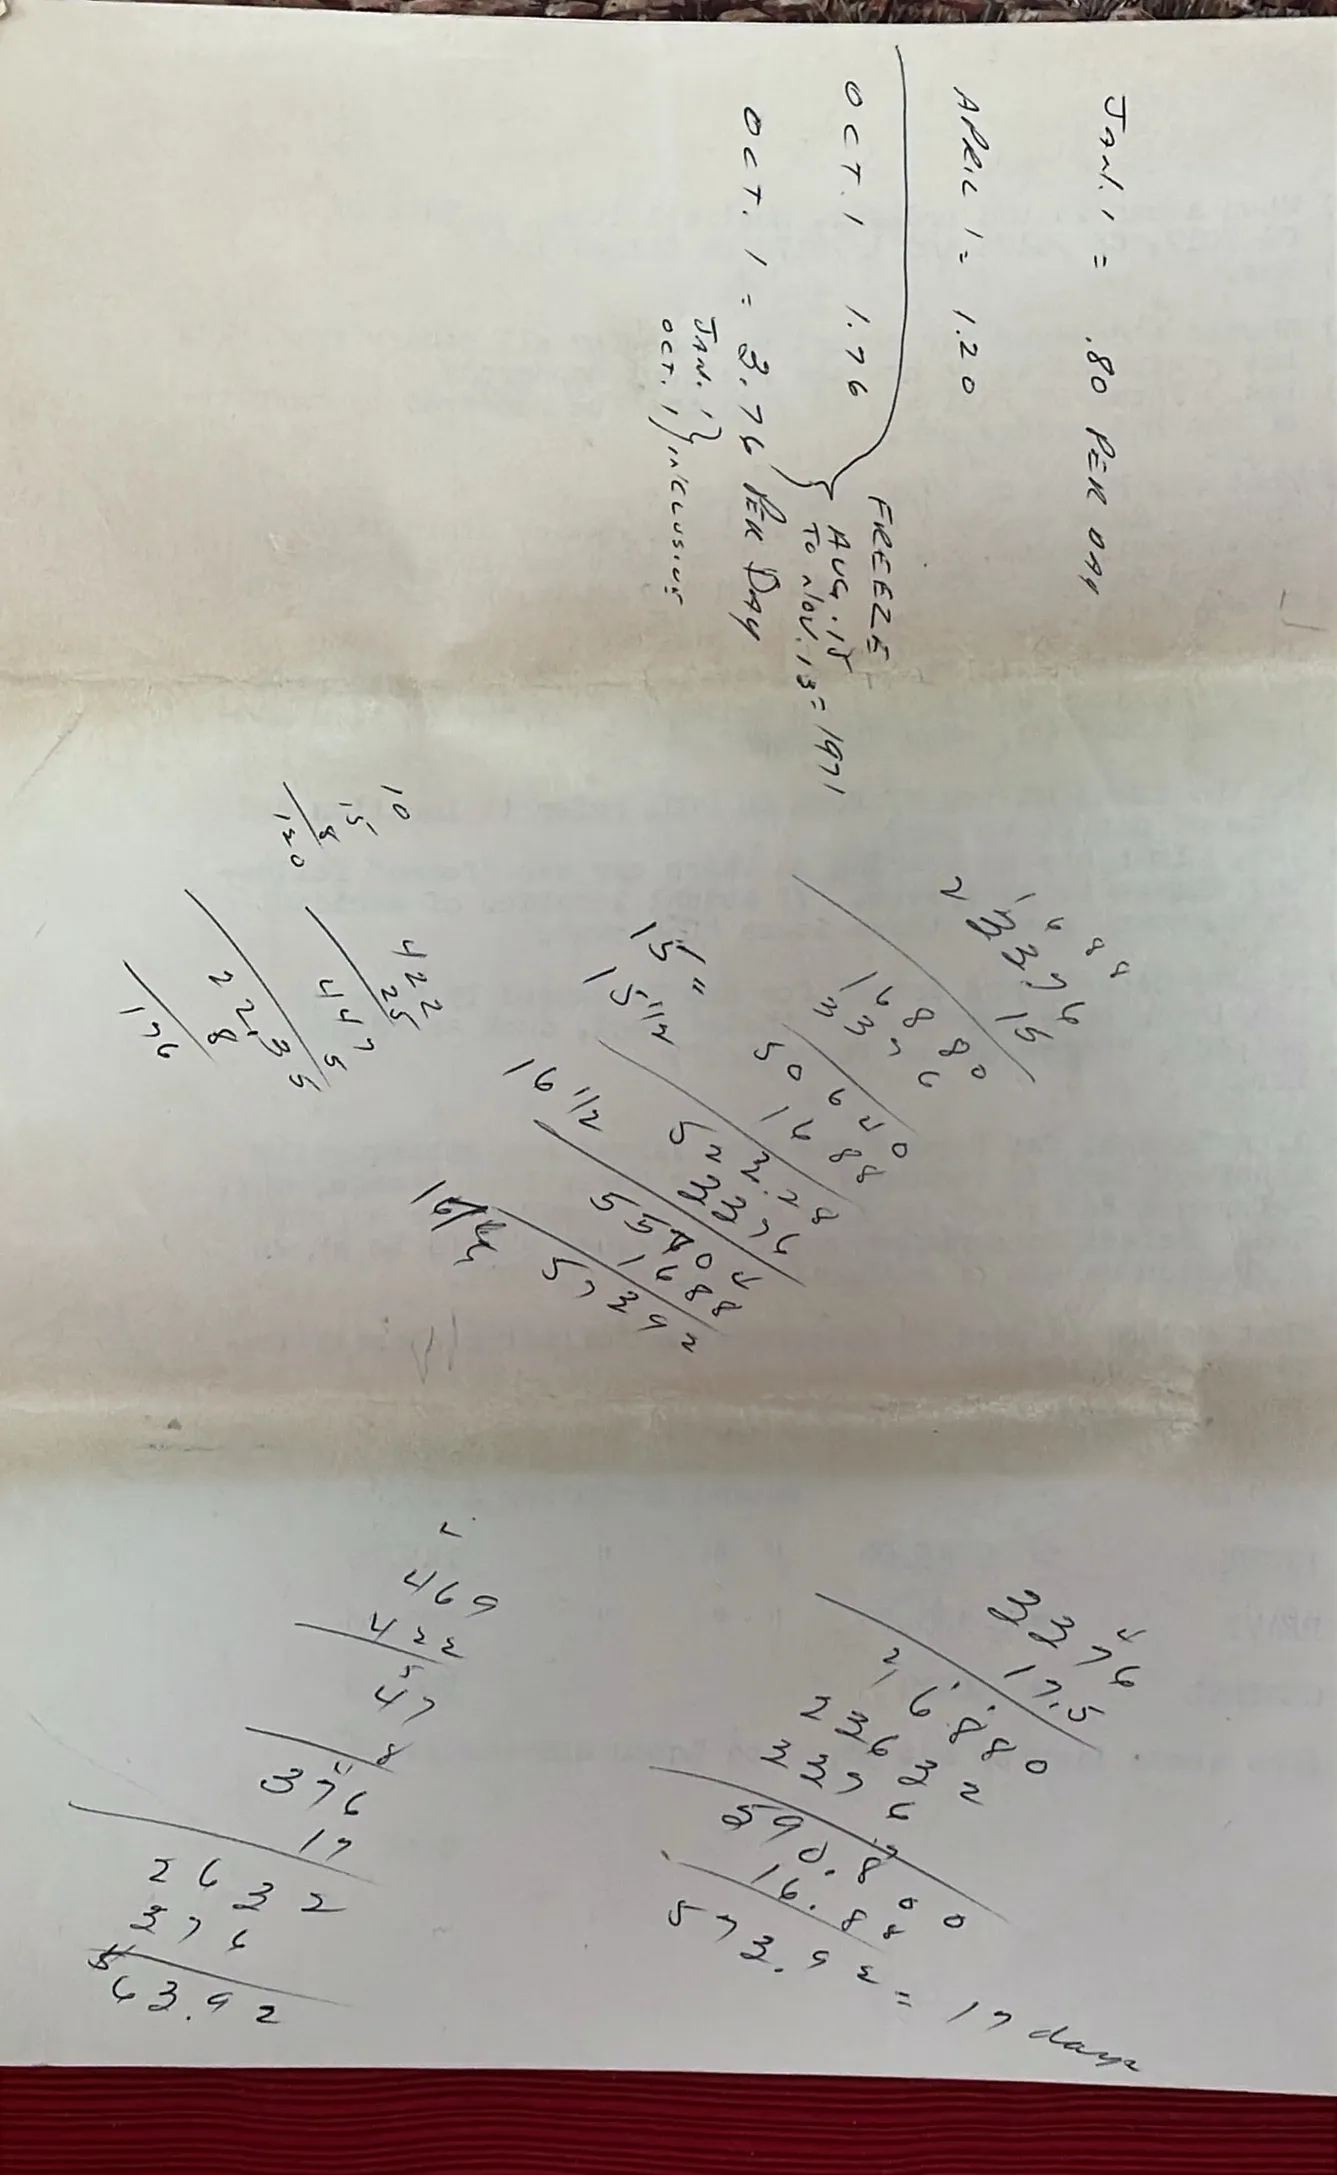 JAN. 1 = .80 PER DAY
APRIL 1 = 1.20
OCT. 1 1.76
FREEZE
AUG. 15
TO NOV. 13 = 1971
OCT. 1 = 3.76 PER DAY
JAN. 1
OCT. 1 } INCLUSIVE
1688
3376
15
16880
3376
50640
1688
15 1/2 52328
3376
16 1/2 55704
1688
57392
10
15
8
120
422
25
447
5
2235
8
176
3376
17.5
16880
23632
3376
590.800
16.88
573.92 = 17 days
469
422
47
8
376
17
2632
376
$63.92